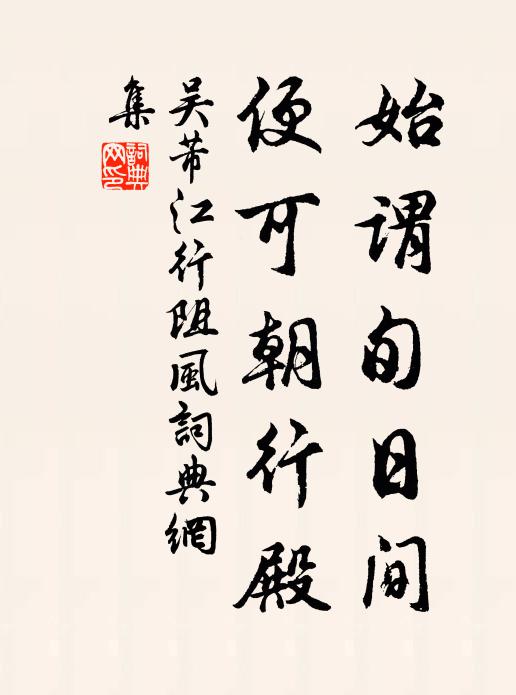 始謂旬日间
便可朝行殿
吴芾江行阻風詞典網
集
詞典網印